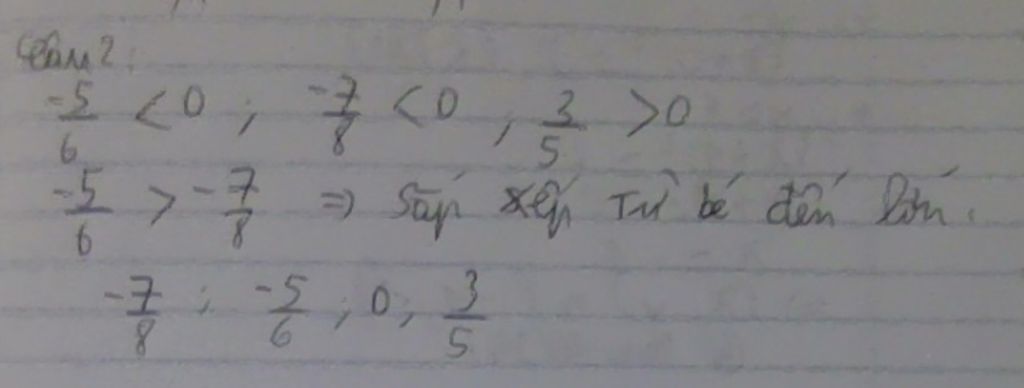 Câu 2:
-5/6 < 0 ; -7/8 < 0 , 3/5 > 0
-5/6 > -7/8 => Sắp xếp Từ bé đến lớn.
-7/8 ; -5/6 ; 0 ; 3/5